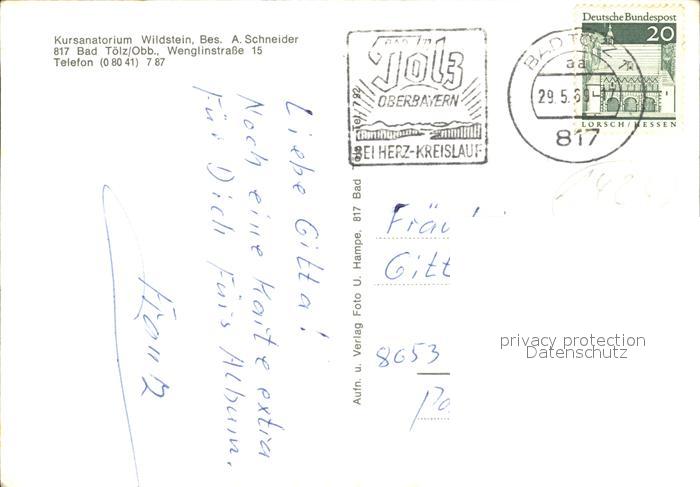 Kursanatorium Wildstein, Bes. A. Schneider
817 Bad Tölz/Obb., Wenglinstraße 15
Telefon (0 80 41) 7 87
Bad Tölz
OBERBAYERN
BEI HERZ-KREISLAUF
BAD TÖLZ
aa
29.5.69-17
817
Deutsche Bundespost
20
LORSCH/HESSEN
Liebe Gitta!
Noch eine Karte extra
für Dich fürs Album.
Franz
Aufn. u. Verlag Foto U. Hampe, 817 Bad Tölz Tel. 7 92
Fräu
Gitt
8053
Pa
privacy protection
Datenschutz